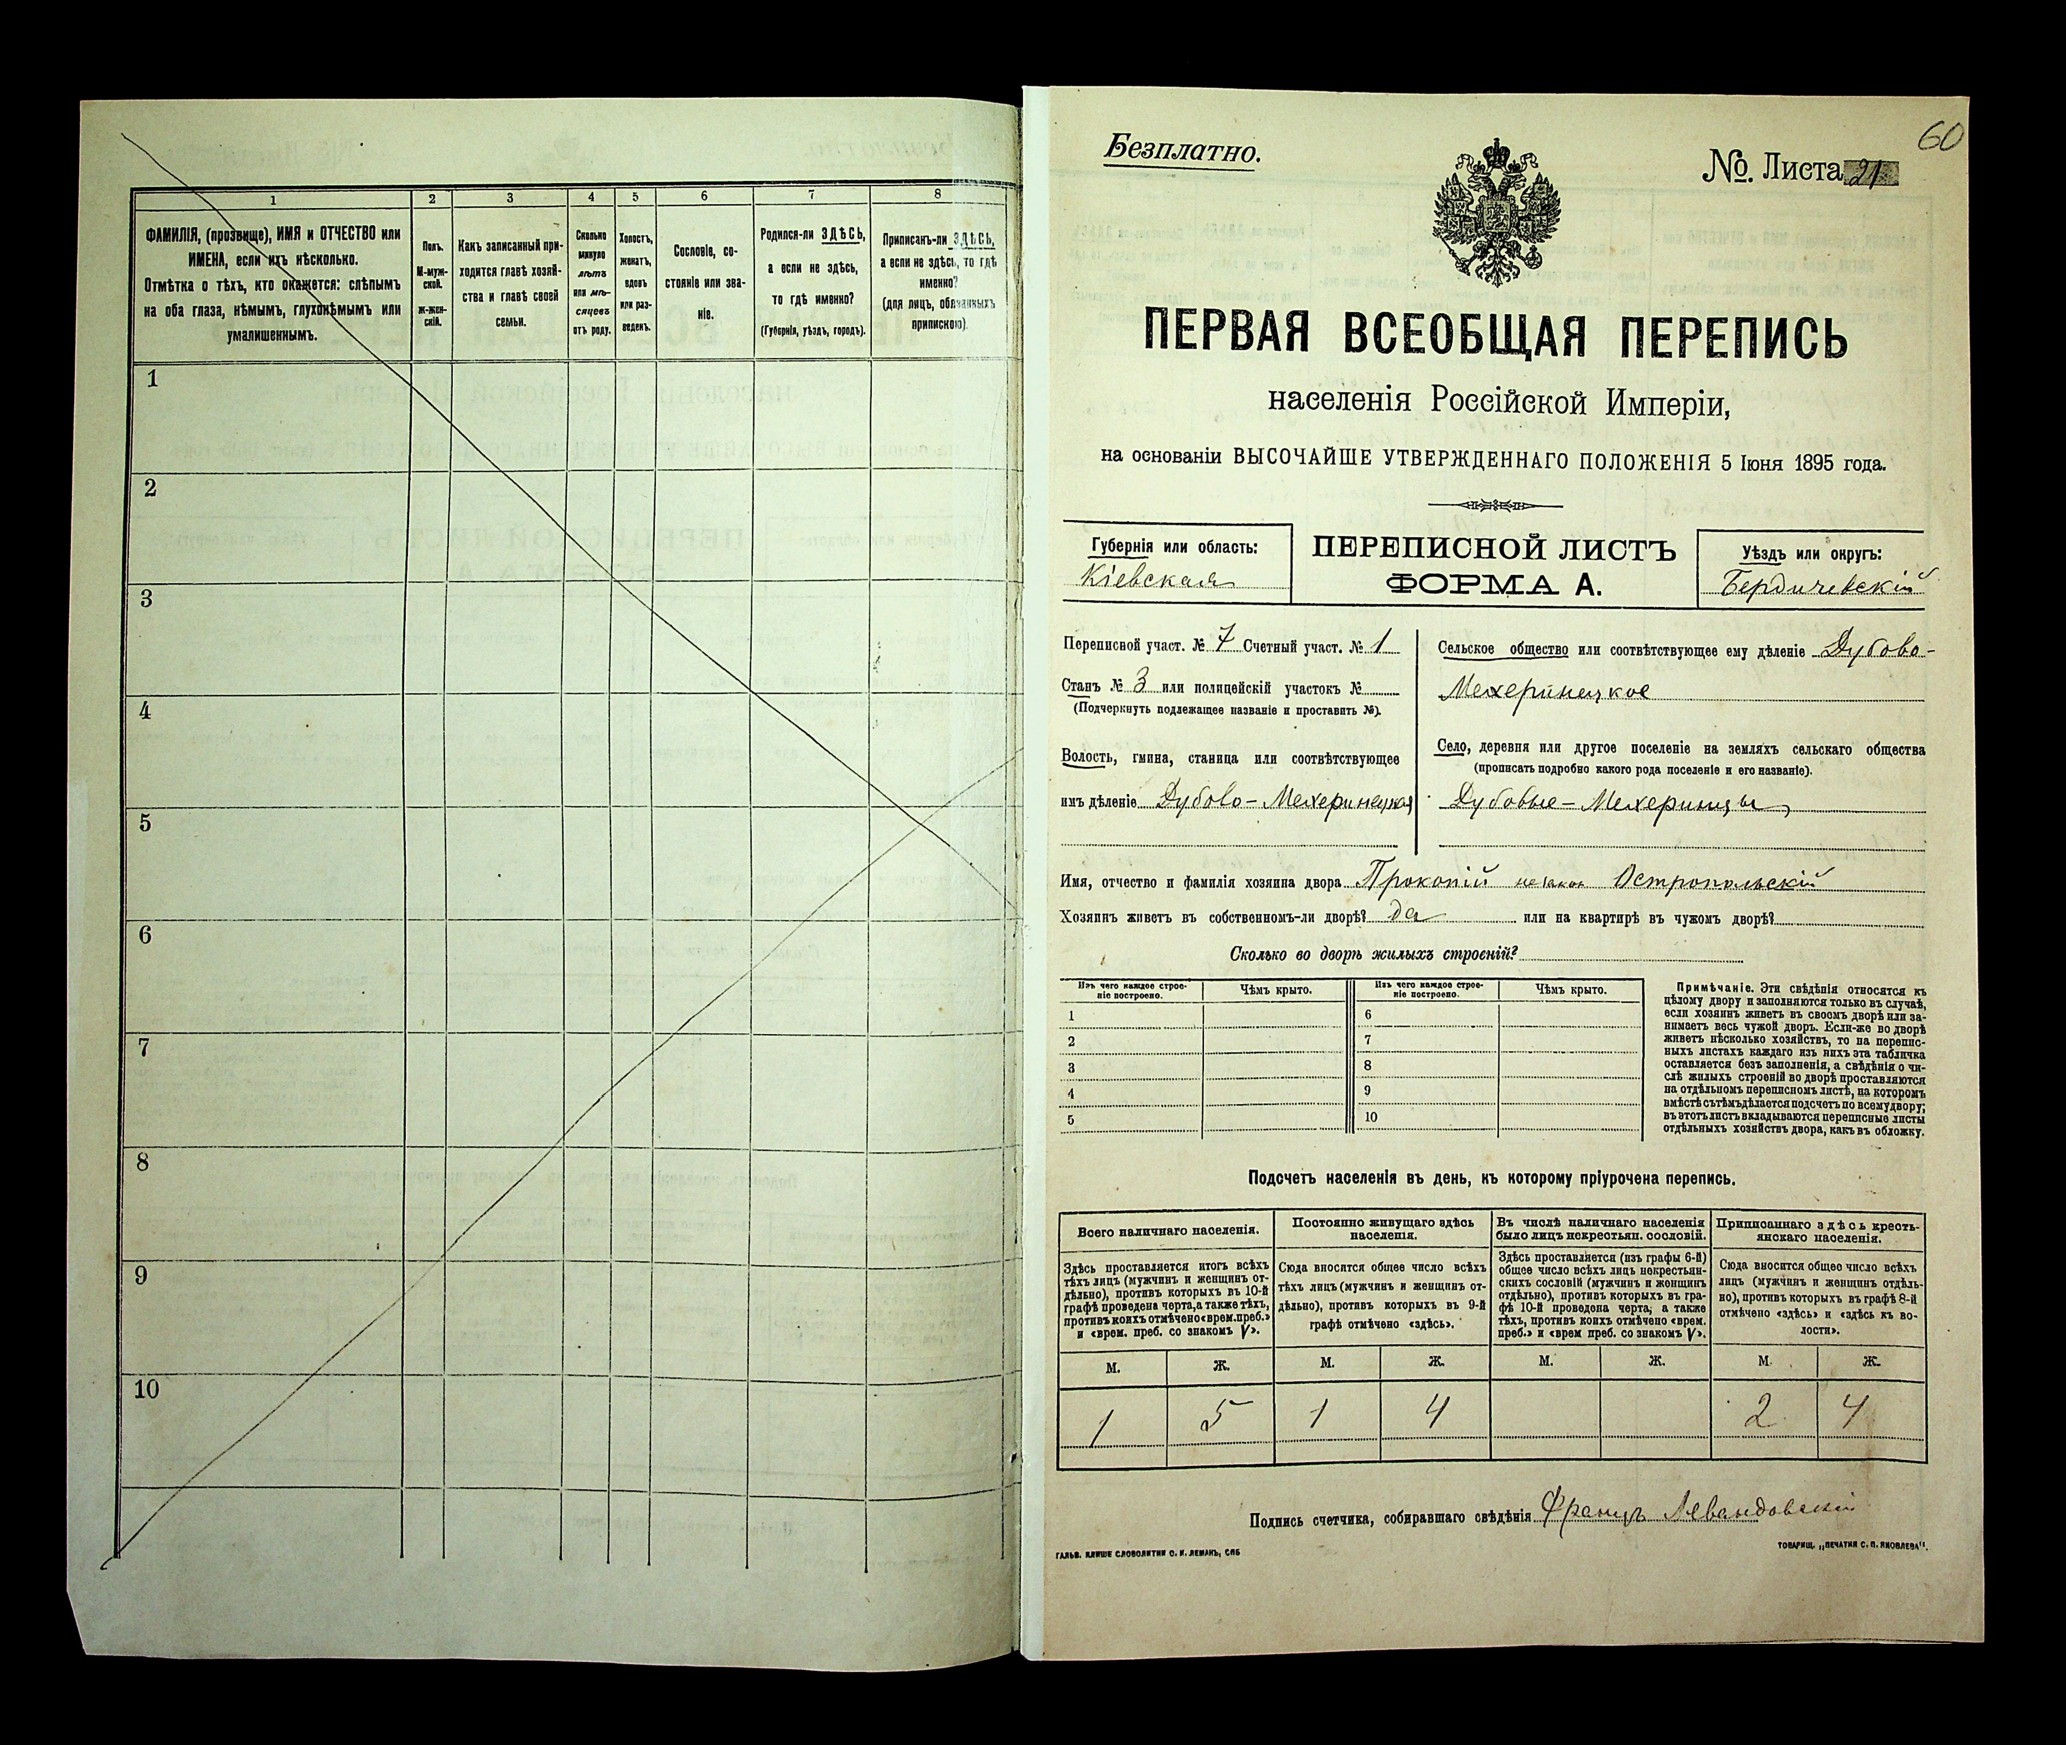 1
2
3
4
5
6
7
8
ФАМИЛІЯ, (прозвище), ИМЯ и ОТЧЕСТВО или
ИМЕНА, если ихъ нѣсколько.
Отмѣтка о тѣхъ, кто окажется: слѣпымъ
на оба глаза, нѣмымъ, глухонѣмымъ или
умалишеннымъ.
Полъ.
М-муж-
ской.
ж-жен-
скій.
Какъ записанный при-
ходится главѣ хозяй-
ства и главѣ своей
семьи.
Сколько
минуло
лѣтъ
или мѣ-
сяцевъ
отъ роду.
Холостъ,
женатъ,
вдовъ
или раз-
веденъ.
Сословіе, со-
стояніе или зва-
ніе.
Родился-ли ЗДѢСЬ,
а если не здѣсь,
то гдѣ именно?
(Губернія, уѣздъ, городъ).
Приписанъ-ли ЗДѢСЬ,
а если не здѣсь, то гдѣ
именно?
(для лицъ, обязанныхъ
припискою).
1
2
3
4
5
6
7
8
9
10
60
Безплатно.
№. Листа 21
ПЕРВАЯ ВСЕОБЩАЯ ПЕРЕПИСЬ
населенія Россійской Имперіи,
на основаніи ВЫСОЧАЙШЕ УТВЕРЖДЕННАГО ПОЛОЖЕНІЯ 5 Іюня 1895 года.
Губернія или область:
Кіевская
ПЕРЕПИСНОЙ ЛИСТЪ
ФОРМА А.
Уѣздъ или округъ:
Бердичевскій
Переписной участ. № 7 Счетный участ. № 1
Станъ № 3 или полицейскій участокъ №
(Подчеркнуть подлежащее названіе и проставить №).
Волость, гмина, станица или соотвѣтствующее
имъ дѣленіе Дубово-Мехеринецкая
Сельское общество или соотвѣтствующее ему дѣленіе Дубово-
Мехеринецкое
Село, деревня или другое поселеніе на земляхъ сельскаго общества
(прописать подробно какого рода поселеніе и его названіе).
Дубовые-Мехеринцы
Имя, отчество и фамилія хозяина двора Прокопій Остропольскій
Хозяинъ живетъ въ собственномъ-ли дворѣ? да или на квартирѣ въ чужомъ дворѣ?
Сколько во дворѣ жилыхъ строеній?
Изъ чего каждое строе-
ніе построено.
Чѣмъ крыто.
Изъ чего каждое строе-
ніе построено.
Чѣмъ крыто.
1
2
3
4
5
6
7
8
9
10
Примѣчаніе. Эти свѣдѣнія относятся къ
цѣлому двору и заполняются только въ случаѣ,
если хозяинъ живетъ въ своемъ дворѣ или за-
нимаетъ весь чужой дворъ. Если-же во дворѣ
живетъ нѣсколько хозяйствъ, то на перепис-
ныхъ листахъ каждаго изъ нихъ эта табличка
оставляется безъ заполненія, а свѣдѣнія о чи-
слѣ жилыхъ строеній во дворѣ проставляются
на отдѣльномъ переписномъ листѣ, на которомъ
вмѣстѣ съ тѣмъ дѣлается подсчетъ по всему двору;
въ этотъ листъ вкладываются переписные листы
отдѣльныхъ хозяйствъ двора, какъ въ обложку.
Подсчетъ населенія въ день, къ которому пріурочена перепись.
Всего наличнаго населенія.
Здѣсь проставляется итогъ всѣхъ
тѣхъ лицъ (мужчинъ и женщинъ от-
дѣльно), противъ которыхъ въ 10-й
графѣ проведена черта, а также тѣхъ,
противъ коихъ отмѣчено «врем. преб.»
и «врем. преб. со знакомъ V».
Постоянно живущаго здѣсь
населенія.
Сюда вносится общее число всѣхъ
тѣхъ лицъ (мужчинъ и женщинъ от-
дѣльно), противъ которыхъ въ 9-й
графѣ отмѣчено «здѣсь».
Въ числѣ наличнаго населенія
было лицъ некрестьян. сословій.
Здѣсь проставляется (изъ графы 6-й)
общее число всѣхъ лицъ некрестьян-
скихъ сословій (мужчинъ и женщинъ
отдѣльно), противъ которыхъ въ гра-
фѣ 10-й проведена черта, а также
тѣхъ, противъ коихъ отмѣчено «врем.
преб.» и «врем преб. со знакомъ V».
Приписаннаго здѣсь кресть-
янскаго населенія.
Сюда вносится общее число всѣхъ
лицъ (мужчинъ и женщинъ отдѣль-
но), противъ которыхъ въ графѣ 8-й
отмѣчено «здѣсь» и «здѣсь къ во-
лости».
М. Ж. М. Ж. М. Ж. М. Ж.
1 5 1 4 2 4
Подпись счетчика, собиравшаго свѣдѣнія Францъ Левандовскій
ГАЛЬВ. КЛИШЕ СЛОВОЛИТНИ О. И. ЛЕМАНЪ, СПБ
ТОВАРИЩ. „ПЕЧАТНЯ С. П. ЯКОВЛЕВА“.